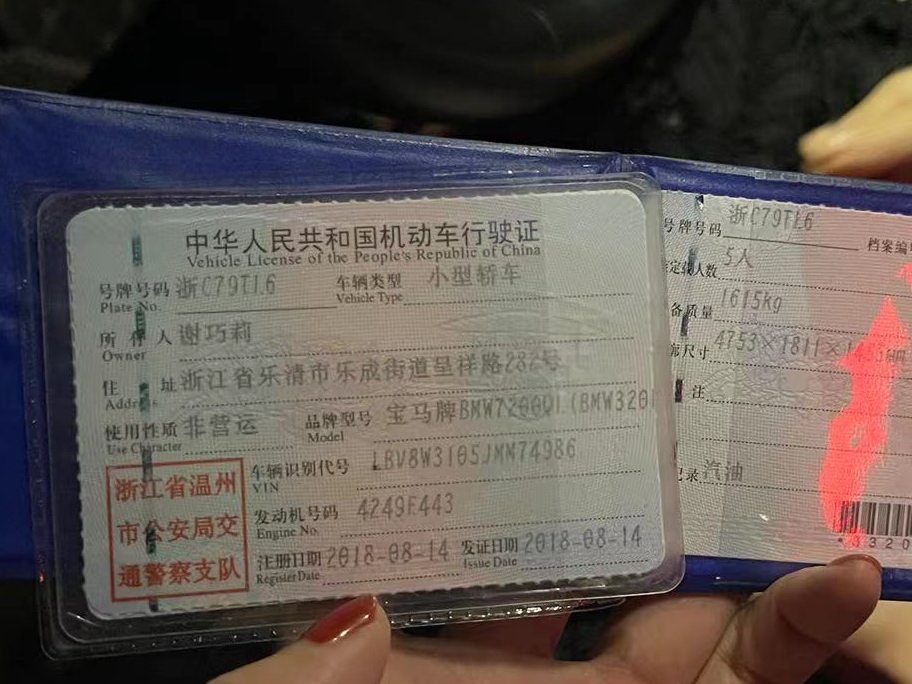 中华人民共和国机动车行驶证
Vehicle License of the People's Republic of China
号牌号码 浙C79TL6 车辆类型 小型轿车
Plate No. Vehicle Type
所有人 谢巧莉
Owner
住址 浙江省乐清市乐成街道呈祥路282号
Address
使用性质 非营运 品牌型号 宝马牌BMW7200QL(BMW320
Use Character Model
浙江省温州
市公安局交
通警察支队
车辆识别代号 LBV8W3105JMM74986
VIN
发动机号码 4249F443
Engine No.
注册日期 2018-08-14 发证日期 2018-08-14
Register Date Issue Date
号牌号码 浙C79TL6 档案编
定载人数 5人
备质量 1615kg
廓尺寸 4753×1811×
注
记录 汽油